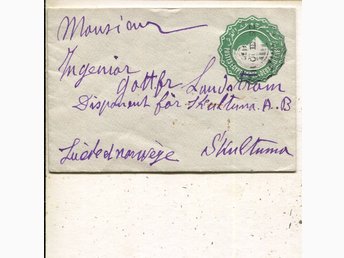 Monsieur
Ingeniör
Gottfr. Lundström
Disponent för Skultuna A.B
Suède & norwège Skultuna